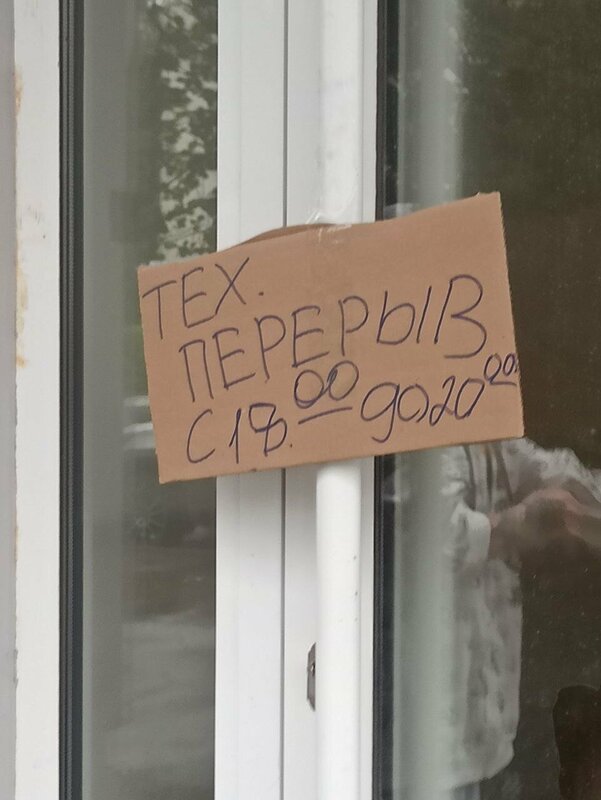 ТЕХ.
ПЕРЕРЫВ
С 18.00 до 20 00